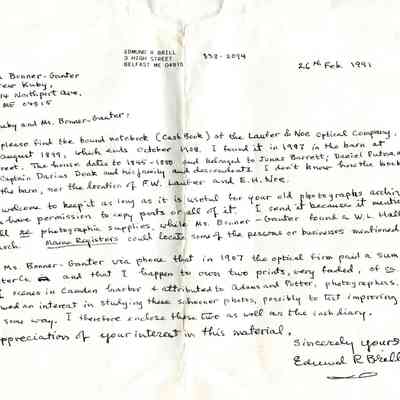 EDMUND R BRILL
3 HIGH STREET
BELFAST ME 04915
338-2094
26th Feb. 1991
Bonner-Ganter
Kuby,
Northport Ave,
ME 04915
Kuby and Ms. Bonner-Ganter:
please find the bound notebook (Cash Book) of the Lauter & Noe Optical Company,
August 1899, which ends October 1908. I found it in 1987 in the barn at
The house dates to 1845-1850 and belonged to Jonas Barrett; Daniel Putnam,
Captain Darius Doak and his family and descendents. I don't know how the book
the barn, nor the location of F.W. Lauter and E.H. Noe.
welcome to keep it as long as it is useful for your old photographs archive
have permission to copy parts or all of it. I send it because it
photographic supplies, while Ms. Bonner-Ganter found a W.L. Hall
Maine Registers could locate some of the persons or businesses mentioned.
Ms. Bonner-Ganter via phone that in 1907 the optical firm paid a sum
and that I happen to own two prints, very faded, of
scenes in Camden harbor & attributed to Adams and Potter, photographers.
an interest in studying these schooner photos, possibly to test improving
some way. I therefore enclose these two as well as the cash diary.
appreciation of your interest in this material.
Sincerely yours
Edmund R Brill